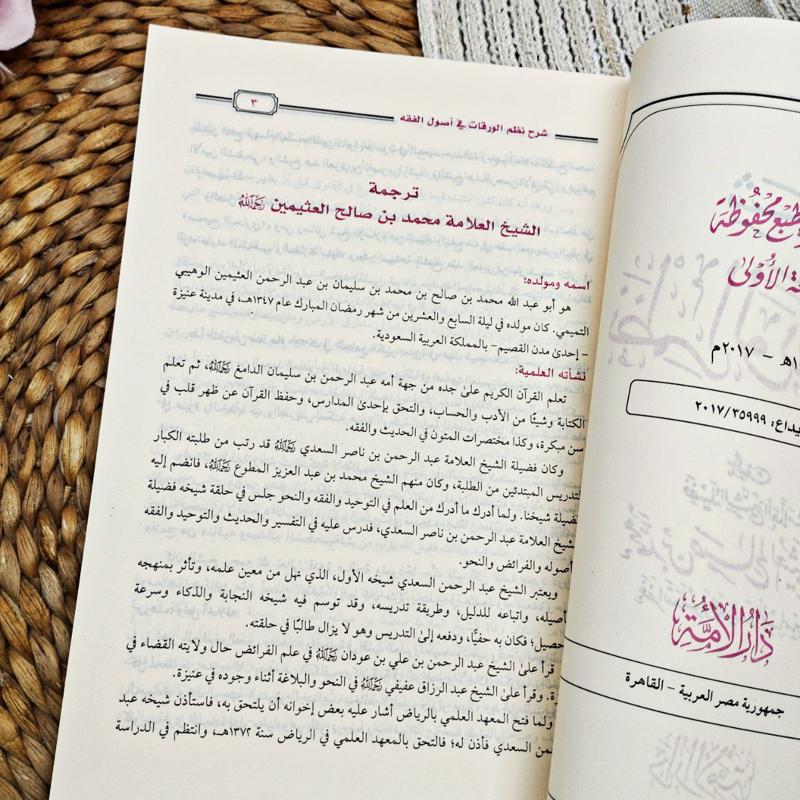 شرح نظم الورقات في أصول الفقه
٣
ترجمة
الشيخ العلامة محمد بن صالح العثيمين ﵀
اسمه ومولده:
هو أبو عبد الله محمد بن صالح بن محمد بن سليمان بن عبد الرحمن العثيمين الوهيبي
التميمي. كان مولده في ليلة السابع والعشرين من شهر رمضان المبارك عام ١٣٤٧هـ، في مدينة عنيزة
- إحدى مدن القصيم- بالمملكة العربية السعودية.
نشأته العلمية:
تعلم القرآن الكريم على جده من جهة أمه عبد الرحمن بن سليمان الدامغ ﵀، ثم تعلم
الكتابة وشيئًا من الأدب والحساب، والتحق بإحدى المدارس، وحفظ القرآن عن ظهر قلب في
سن مبكرة، وكذا مختصرات المتون في الحديث والفقه.
وكان فضيلة الشيخ العلامة عبد الرحمن بن ناصر السعدي ﵀ قد رتب من طلبته الكبار
لتدريس المبتدئين من الطلبة، وكان منهم الشيخ محمد بن عبد العزيز المطوع ﵀، فانضم إليه
فضيلة شيخنا. ولما أدرك ما أدرك من العلم في التوحيد والفقه والنحو جلس في حلقة شيخه فضيلة
الشيخ العلامة عبد الرحمن بن ناصر السعدي، فدرس عليه في التفسير والحديث والتوحيد والفقه
وأصوله والفرائض والنحو.
ويعتبر الشيخ عبد الرحمن السعدي شيخه الأول، الذي نهل من معين علمه، وتأثر بمنهجه
وتأصيله، واتباعه للدليل، وطريقة تدريسه، وقد توسم فيه شيخه النجابة والذكاء وسرعة
التحصيل؛ فكان به حفيًّا، ودفعه إلى التدريس وهو لا يزال طالبًا في حلقته.
قرأ على الشيخ عبد الرحمن بن علي بن عودان ﵀ في علم الفرائض حال ولايته القضاء في
وقرأ على الشيخ عبد الرزاق عفيفي ﵀ في النحو والبلاغة أثناء وجوده في عنيزة.
ولما فتح المعهد العلمي بالرياض أشار عليه بعض إخوانه أن يلتحق به، فاستأذن شيخه عبد
السعدي فأذن له؛ فالتحق بالمعهد العلمي في الرياض سنة ١٣٧٢هـ، وانتظم في الدراسة
محفوظة
الأولى
هـ – ٢٠١٧م
٢٠١٧/٣٥٩٩٩
دار الأمة
جمهورية مصر العربية – القاهرة